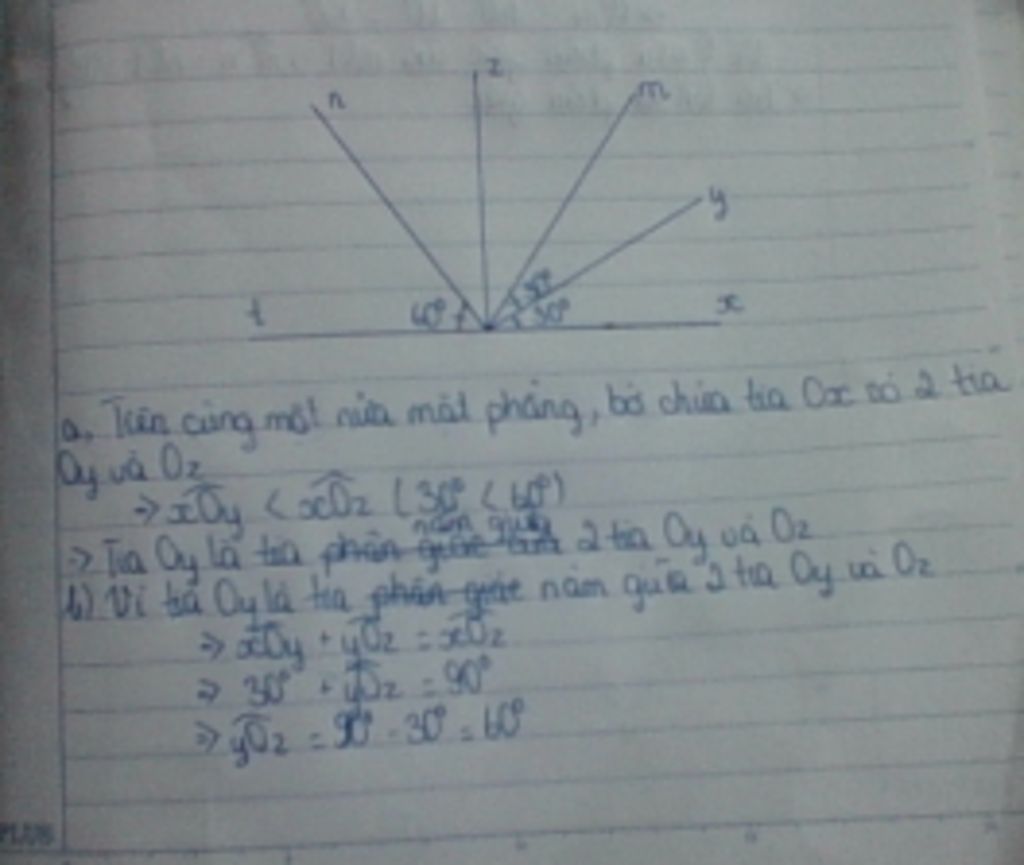 n
z
m
y
t
60°
30°
30°
x
a. Trên cùng một nửa mặt phẳng, bờ chứa tia Ox có 2 tia
Oy và Oz
=> xOy < xOz (30° < 60°)
nằm giữa
=> Tia Oy là tia phân giác của 2 tia Oy và Oz
b) Vì tia Oy là tia phân giác nằm giữa 2 tia Oy và Oz
=> xOy + yOz = xOz
=> 30° + yOz = 90°
=> yOz = 90° - 30° = 60°
PLUS